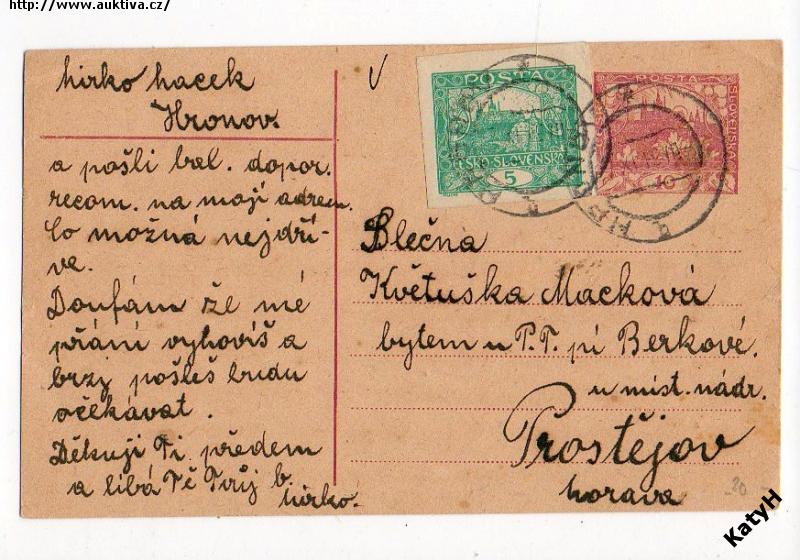 http://www.auktiva.cz/
Mirko Macek
Hronov.
a pošli bal. dopor.
recom. na mojí adresu.
Co možná nejdří-
ve.
Doufám že mé
přání vyhovíš a
brzy pošleš budu
očěkávat.
Děkuji Ti předem
a líbá Tě Tvůj b.
Mirko.
POŠTA
ČESKO-SLOVENSKÁ
5
POŠTA
SLOVENSKÁ
10
Slečna
Květuška Macková
bytem u P.T. pí Berkové.
u míst. nádr.
Prostějov
Morava
20
KatyH